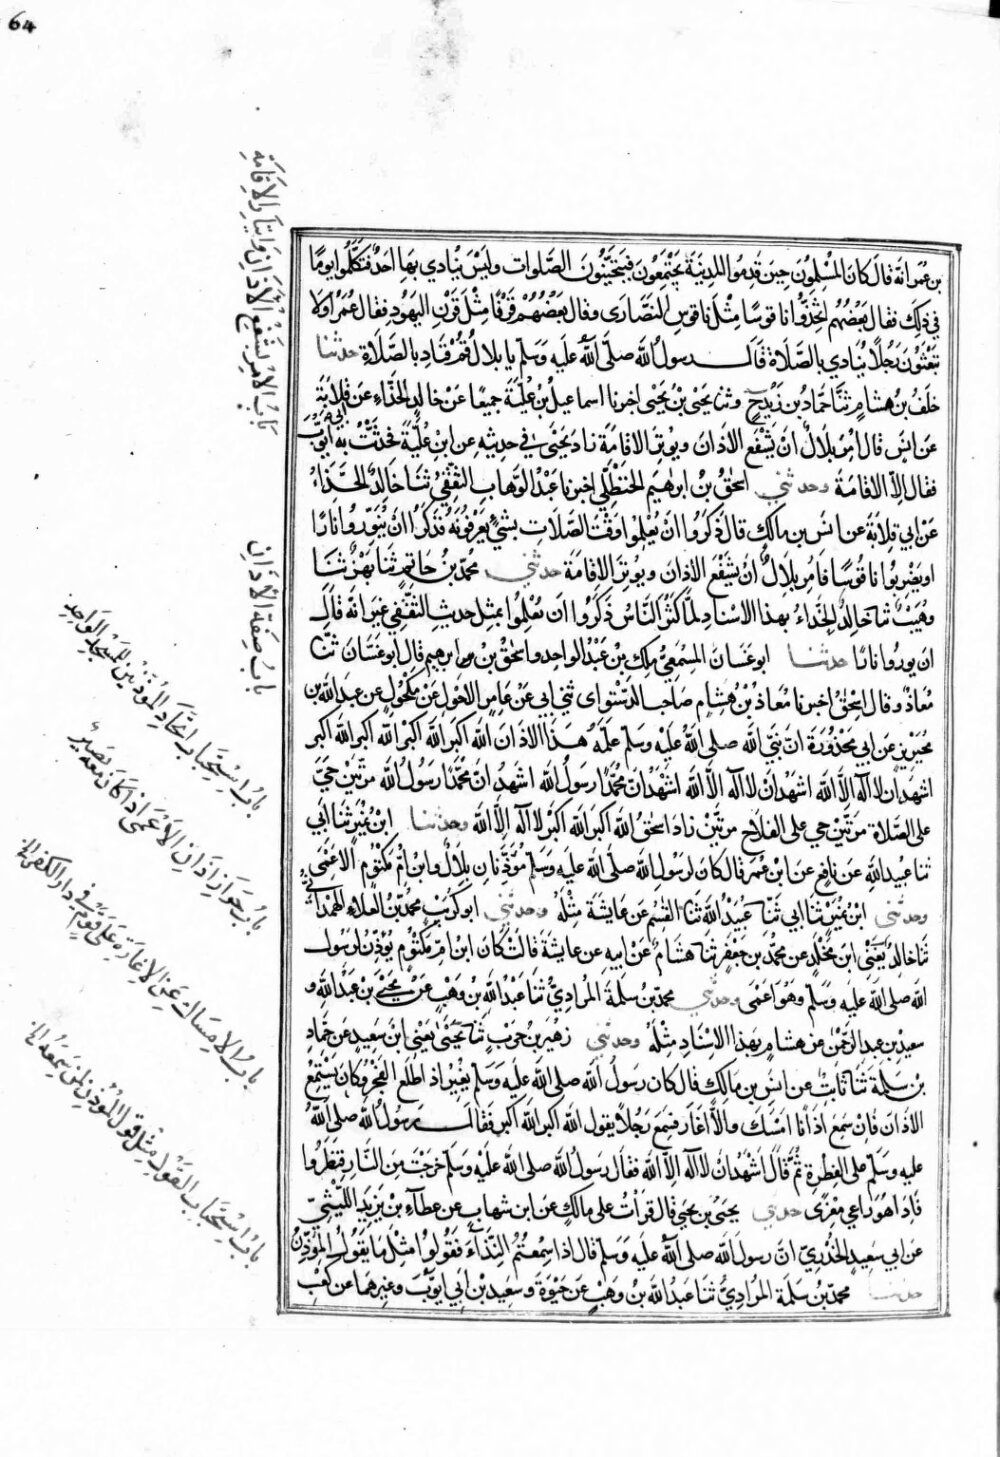 64
بن عمر انه قال كان المسلمون حين قدموا المدينة يجتمعون فيتحينون الصلوات وليس ينادي بها احد فتكلموا يوما
في ذلك فقال بعضهم اتخذوا ناقوسا مثل ناقوس النصارى وقال بعضهم قرنا مثل قرن اليهود فقال عمر اولا
تبعثون رجلا ينادي بالصلاة قال رسول الله صلى الله عليه وسلم يا بلال قم فناد بالصلاة حدثنا
خلف بن هشام ثنا حماد بن زيد ح وثنا يحيى بن يحيى اخبرنا اسماعيل بن علية جميعا عن خالد الحذاء عن ابي قلابة
عن انس قال امر بلال ان يشفع الاذان ويوتر الاقامة زاد يحيى في حديثه عن ابن علية فحدثت به ايوب
فقال الا الاقامة وحدثني اسحق بن ابرهيم الحنظلي اخبرنا عبد الوهاب الثقفي ثنا خالد الحذاء
عن ابي قلابة عن انس بن مالك قال ذكروا ان يعلموا وقت الصلات بشيء يعرفونه فذكروا ان ينوروا نارا
او يضربوا ناقوسا فامر بلال ان يشفع الاذان ويوتر الاقامة حدثني محمد بن حاتم ثنا بهز ثنا
وهيب ثنا خالد الحذاء بهذا الاسناد لما كثر الناس ذكروا ان يعلموا بمثل حديث الثقفي غير انه قال
ان يوروا نارا حدثنا ابو غسان المسمعي ملك بن عبد الواحد واسحق بن ابرهيم قال ابو غسان ثنا
معاذ وقال اسحق اخبرنا معاذ بن هشام صاحب الدستواى ثني ابي عن عامر الاحول عن مكحول عن عبد الله بن
محيريز عن ابي محذورة ان نبي الله صلى الله عليه وسلم علمه هذا الاذان الله اكبر الله اكبر الله اكبر الله اكبر
اشهد ان لا اله الا الله اشهد ان لا اله الا الله اشهد ان محمدا رسول الله اشهد ان محمدا رسول الله مرتين حي
على الصلاة مرتين حي على الفلاح مرتين زاد اسحق الله اكبر الله اكبر لا اله الا الله وحدثنا ابن نمير ثنا ابي
ثنا عبيد الله عن نافع عن ابن عمر قال كان لرسول الله صلى الله عليه وسلم مؤذنان بلال وابن ام مكتوم الاعمى
وحدثني ابن نمير ثنا ابي ثنا عبيد الله ثنا القسم عن عايشة مثله وحدثني ابو كريب محمد بن العلاء الهمداني
ثنا خالد يعني ابن مخلد عن محمد بن جعفر ثنا هشام عن ابيه عن عايشة قالت كان ابن ام مكتوم يؤذن لرسول
الله صلى الله عليه وسلم وهو اعمى وحدثني محمد بن سلمة المرادي ثنا عبد الله بن وهب عن يحيى بن عبد الله و
سعيد بن عبد الرحمن عن هشام بهذا الاسناد مثله وحدثني زهير بن حرب ثنا يحيى يعني ابن سعيد عن حماد
بن سلمة ثنا ثابت عن انس بن مالك قال كان رسول الله صلى الله عليه وسلم يغير اذا طلع الفجر وكان يستمع
الاذان فان سمع اذانا امسك والا اغار فسمع رجلا يقول الله اكبر الله اكبر فقال رسول الله صلى الله
عليه وسلم على الفطرة ثم قال اشهد ان لا اله الا الله فقال رسول الله صلى الله عليه وسلم خرجت من النار فنظروا
فاذا هو راعي معزى حدثني يحيى بن يحيى قال قرات على مالك عن ابن شهاب عن عطاء بن يزيد الليثي
عن ابي سعيد الخدري ان رسول الله صلى الله عليه وسلم قال اذا سمعتم النداء فقولوا مثل ما يقول المؤذن
حدثنا محمد بن سلمة المرادي ثنا عبد الله بن وهب عن حيوة وسعيد بن ابي ايوب وغيرهما عن كعب
باب الامر بشفع الاذان وايتار الاقامة
باب صفة الاذان
باب استحباب اتخاذ المؤذنين للمسجد الواحد
باب جواز اذان الاعمى اذا كان معه بصير
باب الامساك عن الاغارة على قوم في دار الكفر الخ
باب استحباب القول مثل قول المؤذن لمن سمعه الخ